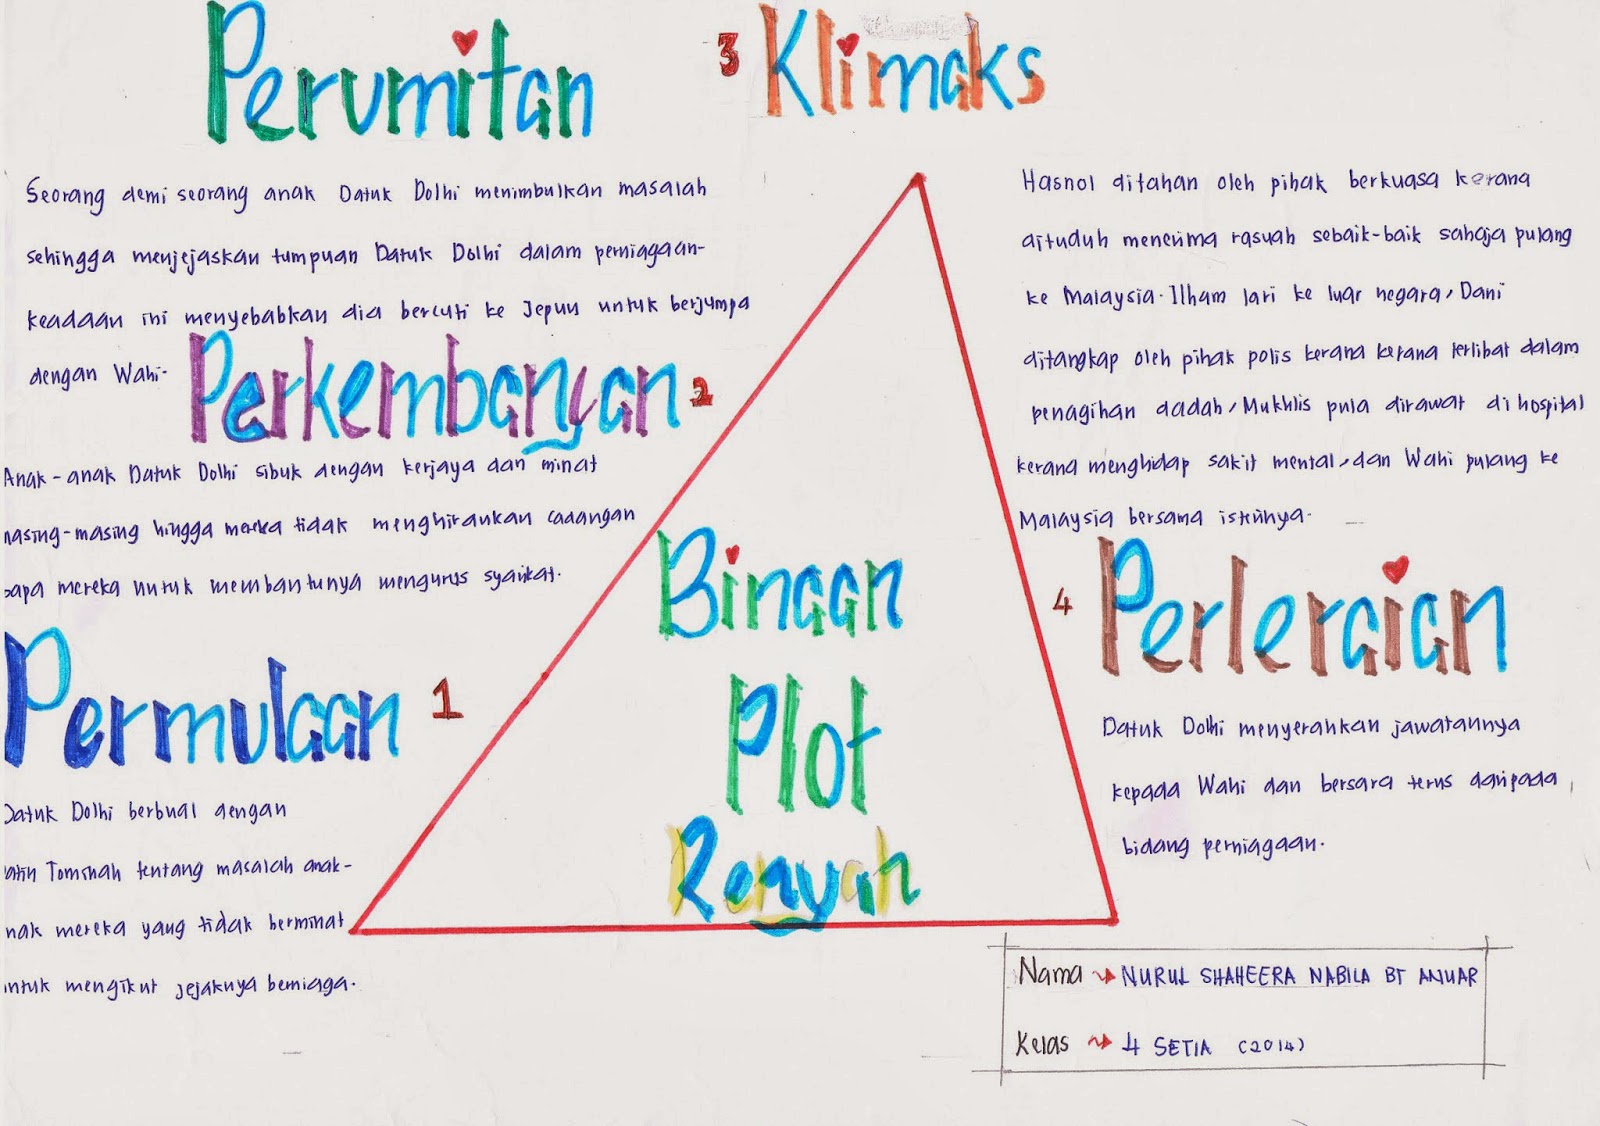 Perumitan
Seorang demi seorang anak Datuk Dolhi menimbulkan masalah
sehingga menjejaskan tumpuan Datuk Dolhi dalam perniagaan-
keadaan ini menyebabkan dia bercuti ke Jepun untuk berjumpa
dengan Wahi.
Perkembangan 2
Anak-anak Datuk Dolhi sibuk dengan kerjaya dan minat
masing-masing hingga mereka tidak menghiraukan cadangan
bapa mereka untuk membantunya mengurus syarikat.
Permulaan 1
Datuk Dolhi berbual dengan
Datin Tomsnah tentang masalah anak-
anak mereka yang tidak berminat
untuk mengikut jejaknya berniaga.
Binaan
Plot
Renyah
3 Klimaks
Hasnol ditahan oleh pihak berkuasa kerana
dituduh menerima rasuah sebaik-baik sahaja pulang
ke Malaysia. Ilham lari ke luar negara, Dani
ditangkap oleh pihak polis kerana kerana terlibat dalam
penagihan dadah, Mukhlis pula dirawat di hospital
kerana menghidap sakit mental, dan Wahi pulang ke
Malaysia bersama isterinya.
4 Perleraian
Datuk Dolhi menyerahkan jawatannya
kepada Wahi dan bersara terus daripada
bidang perniagaan.
Nama → NURUL SHAHEERA NABILA BT ANUAR
Kelas → 4 SETIA (2014)